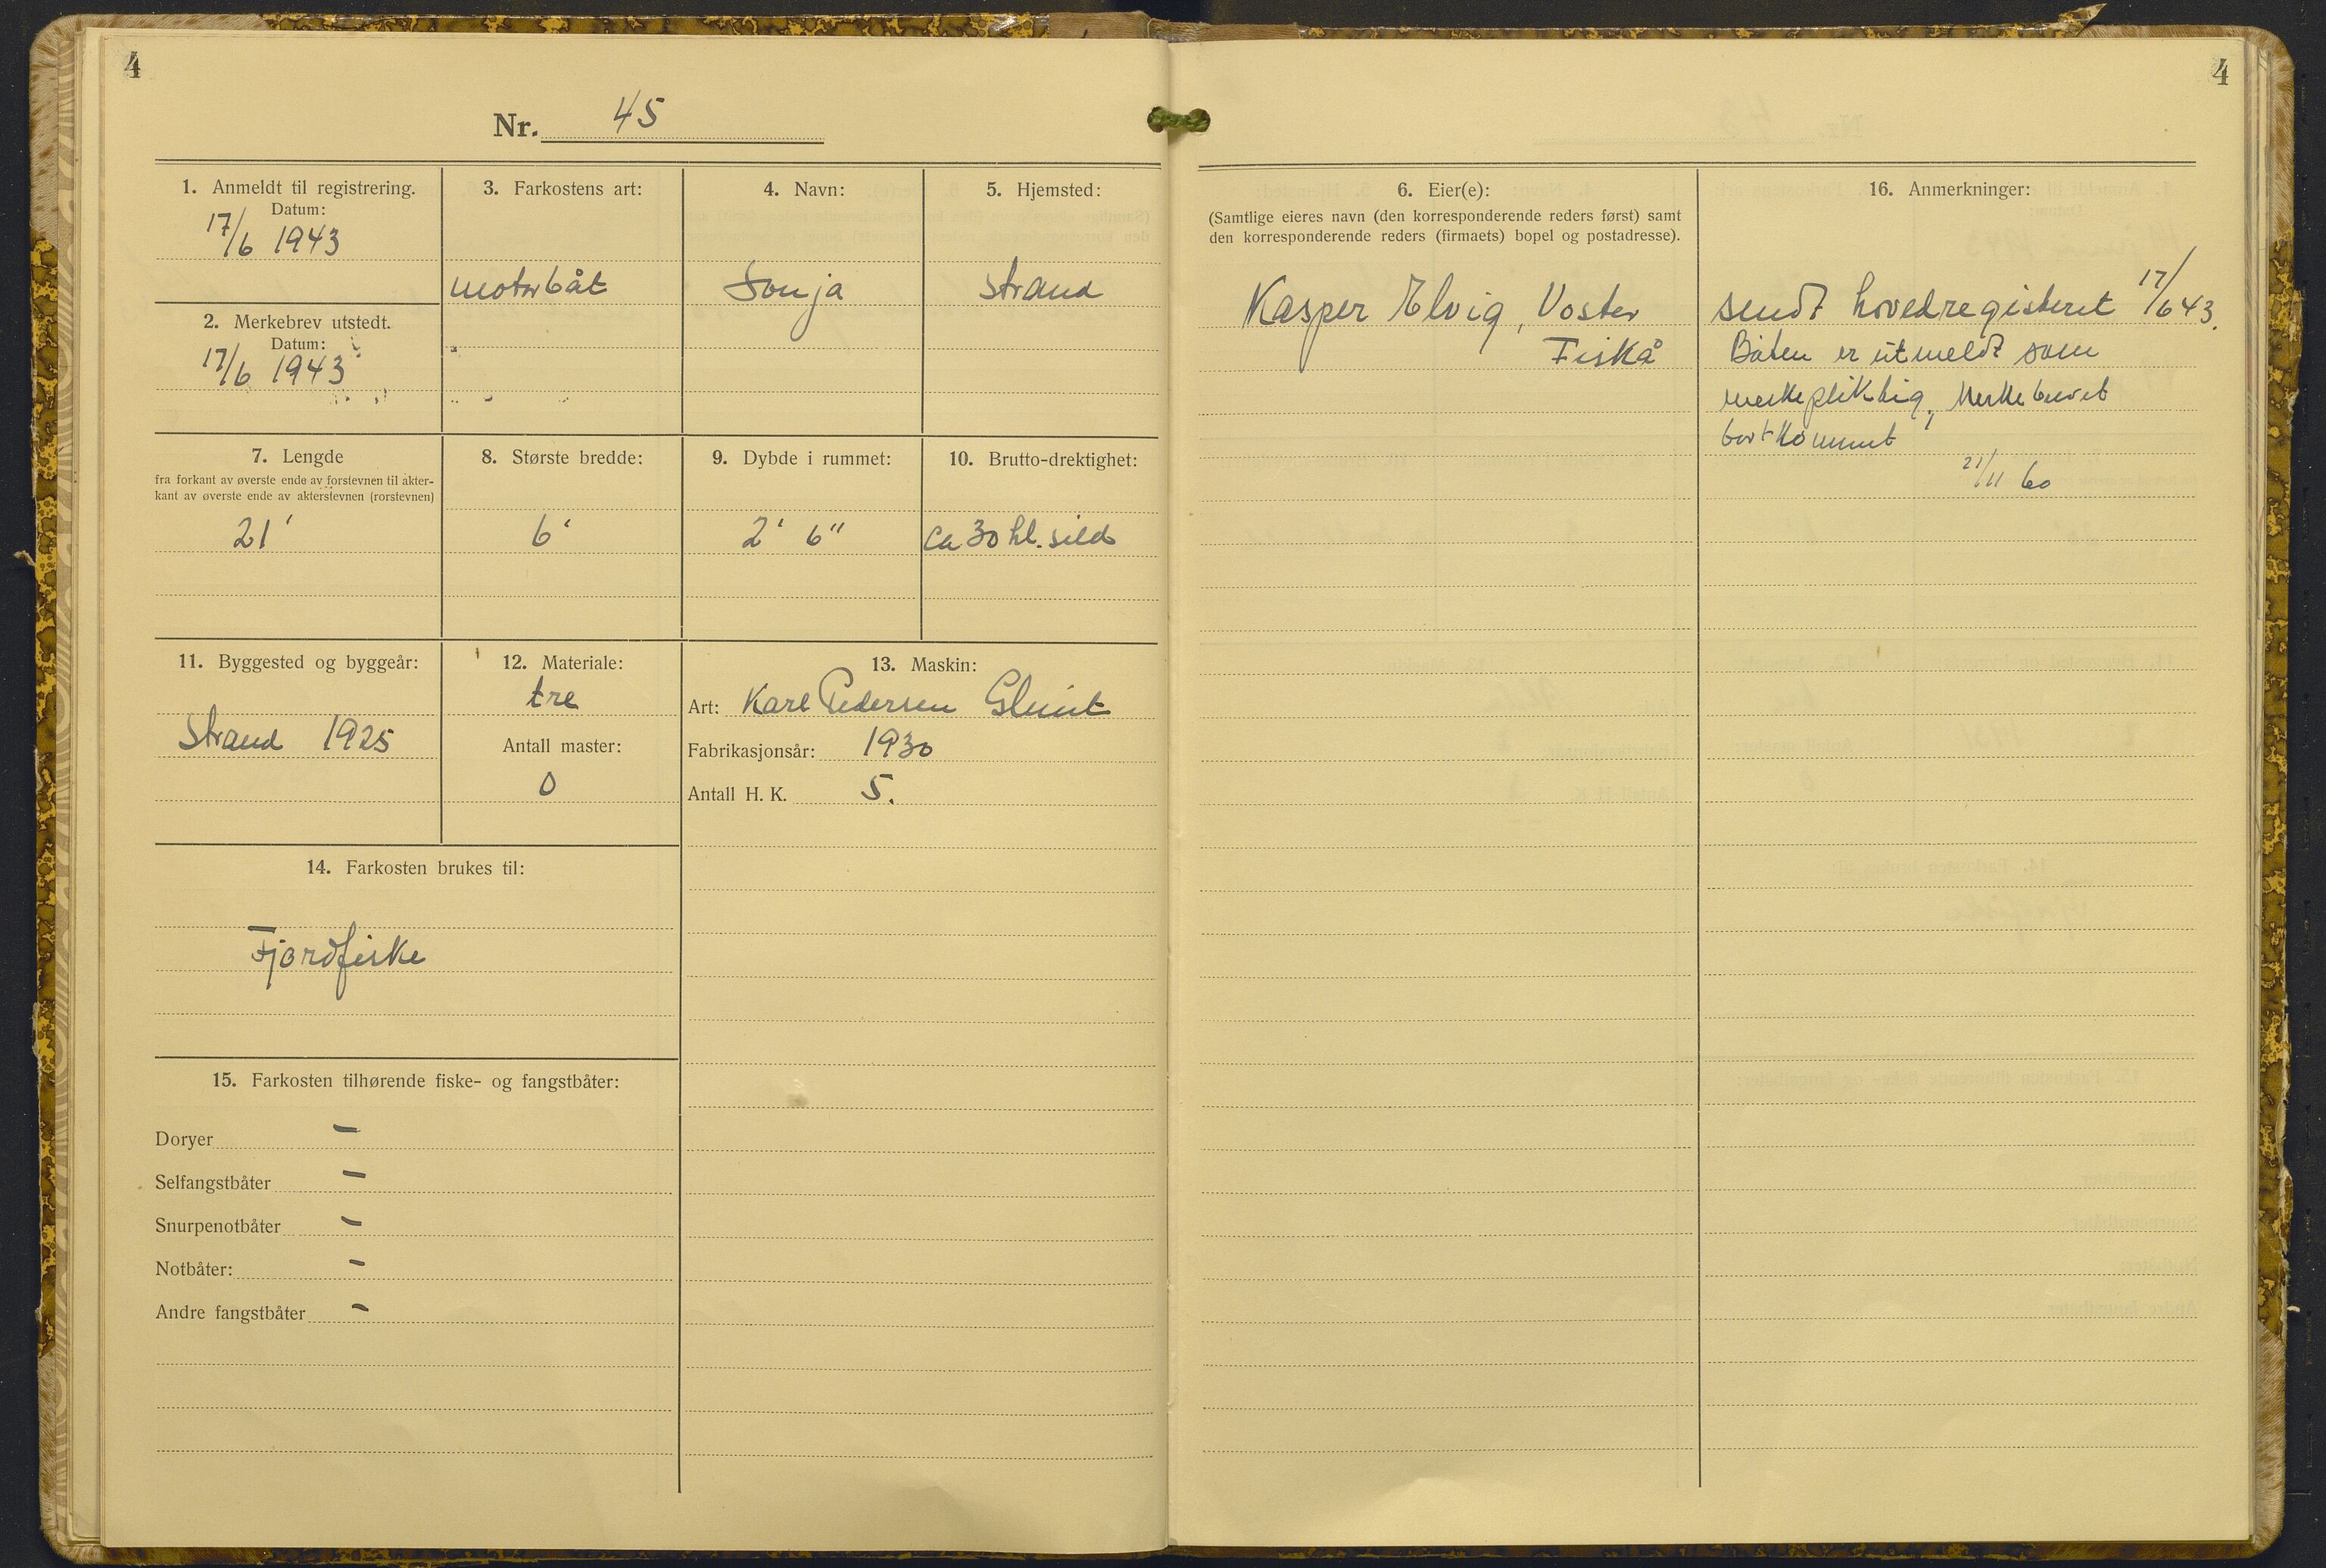 4
Nr. 45
1. Anmeldt til registrering.
Datum:
17/6 1943
2. Merkebrev utstedt.
Datum:
17/6 1943
3. Farkostens art:
motorbåt
4. Navn:
Sonja
5. Hjemsted:
Strand
7. Lengde
fra forkant av øverste ende av forstevnen til akter-
kant av øverste ende av akterstevnen (rorstevnen)
21'
8. Største bredde:
6'
9. Dybde i rummet:
2' 6"
10. Brutto-drektighet:
Ca 30 hl. sild
11. Byggested og byggeår:
Strand 1925
12. Materiale:
tre
Antall master:
0
13. Maskin:
Art: Karl Pedersen Glimt
Fabrikasjonsår: 1930
Antall H. K. 5.
14. Farkosten brukes til:
Fjordfiske
15. Farkosten tilhørende fiske- og fangstbåter:
Doryer –
Selfangstbåter –
Snurpenotbåter –
Notbåter: –
Andre fangstbåter –
4
6. Eier(e):
(Samtlige eieres navn (den korresponderende reders først) samt
den korresponderende reders (firmaets) bopel og postadresse).
Kasper Elvig, Voster
Fiskå
16. Anmerkninger:
sendt hovedregisteret 17/6 43.
Båten er utmeldt som
merkepliktig, Merkebrevet
bortkommet
21/11 60